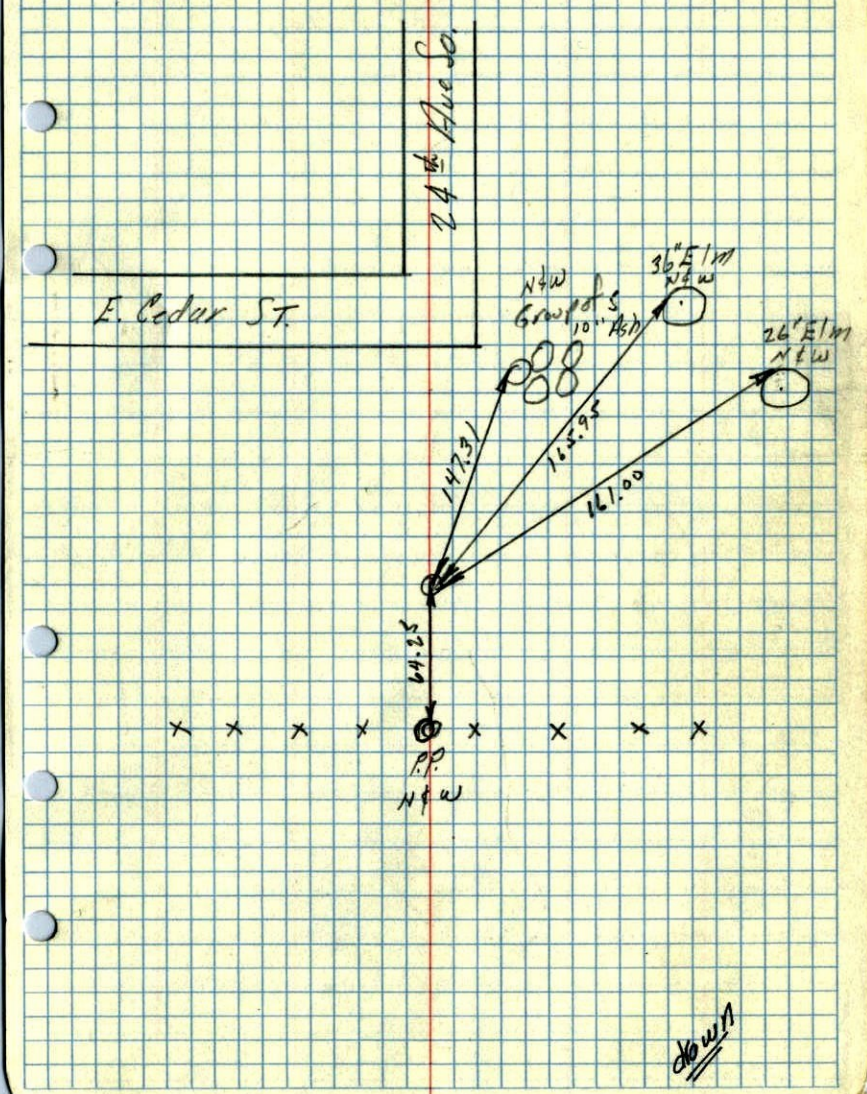 24th Ave So.
E. Cedar ST.
N & W
Group of 5
10" Ash
36" Elm
N & W
26" Elm
N & W
147.31
165.95
161.00
64.25
P.P.
N & W